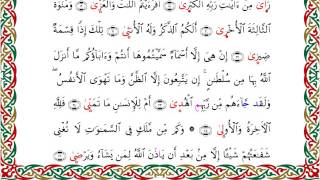 رَأَىٰ مِنْ ءَايَٰتِ رَبِّهِ ٱلْكُبْرَىٰٓ ۝ أَفَرَءَيْتُمُ ٱللَّٰتَ وَٱلْعُزَّىٰ ۝ وَمَنَوٰةَ
ٱلثَّالِثَةَ ٱلْأُخْرَىٰٓ ۝ أَلَكُمُ ٱلذَّكَرُ وَلَهُ ٱلْأُنثَىٰ ۝ تِلْكَ إِذًا قِسْمَةٌ
ضِيزَىٰٓ ۝ إِنْ هِىَ إِلَّآ أَسْمَآءٌ سَمَّيْتُمُوهَآ أَنتُمْ وَءَابَآؤُكُم مَّآ أَنزَلَ
ٱللَّهُ بِهَا مِن سُلْطَٰنٍ ۚ إِن يَتَّبِعُونَ إِلَّا ٱلظَّنَّ وَمَا تَهْوَى ٱلْأَنفُسُ ۖ
وَلَقَدْ جَآءَهُم مِّن رَّبِّهِمُ ٱلْهُدَىٰٓ ۝ أَمْ لِلْإِنسَٰنِ مَا تَمَنَّىٰ ۝ فَلِلَّهِ
ٱلْءَاخِرَةُ وَٱلْأُولَىٰ ۝ وَكَم مِّن مَّلَكٍ فِى ٱلسَّمَٰوَٰتِ لَا تُغْنِى
شَفَٰعَتُهُمْ شَيْـًٔا إِلَّا مِنۢ بَعْدِ أَن يَأْذَنَ ٱللَّهُ لِمَن يَشَآءُ وَيَرْضَىٰٓ ۝